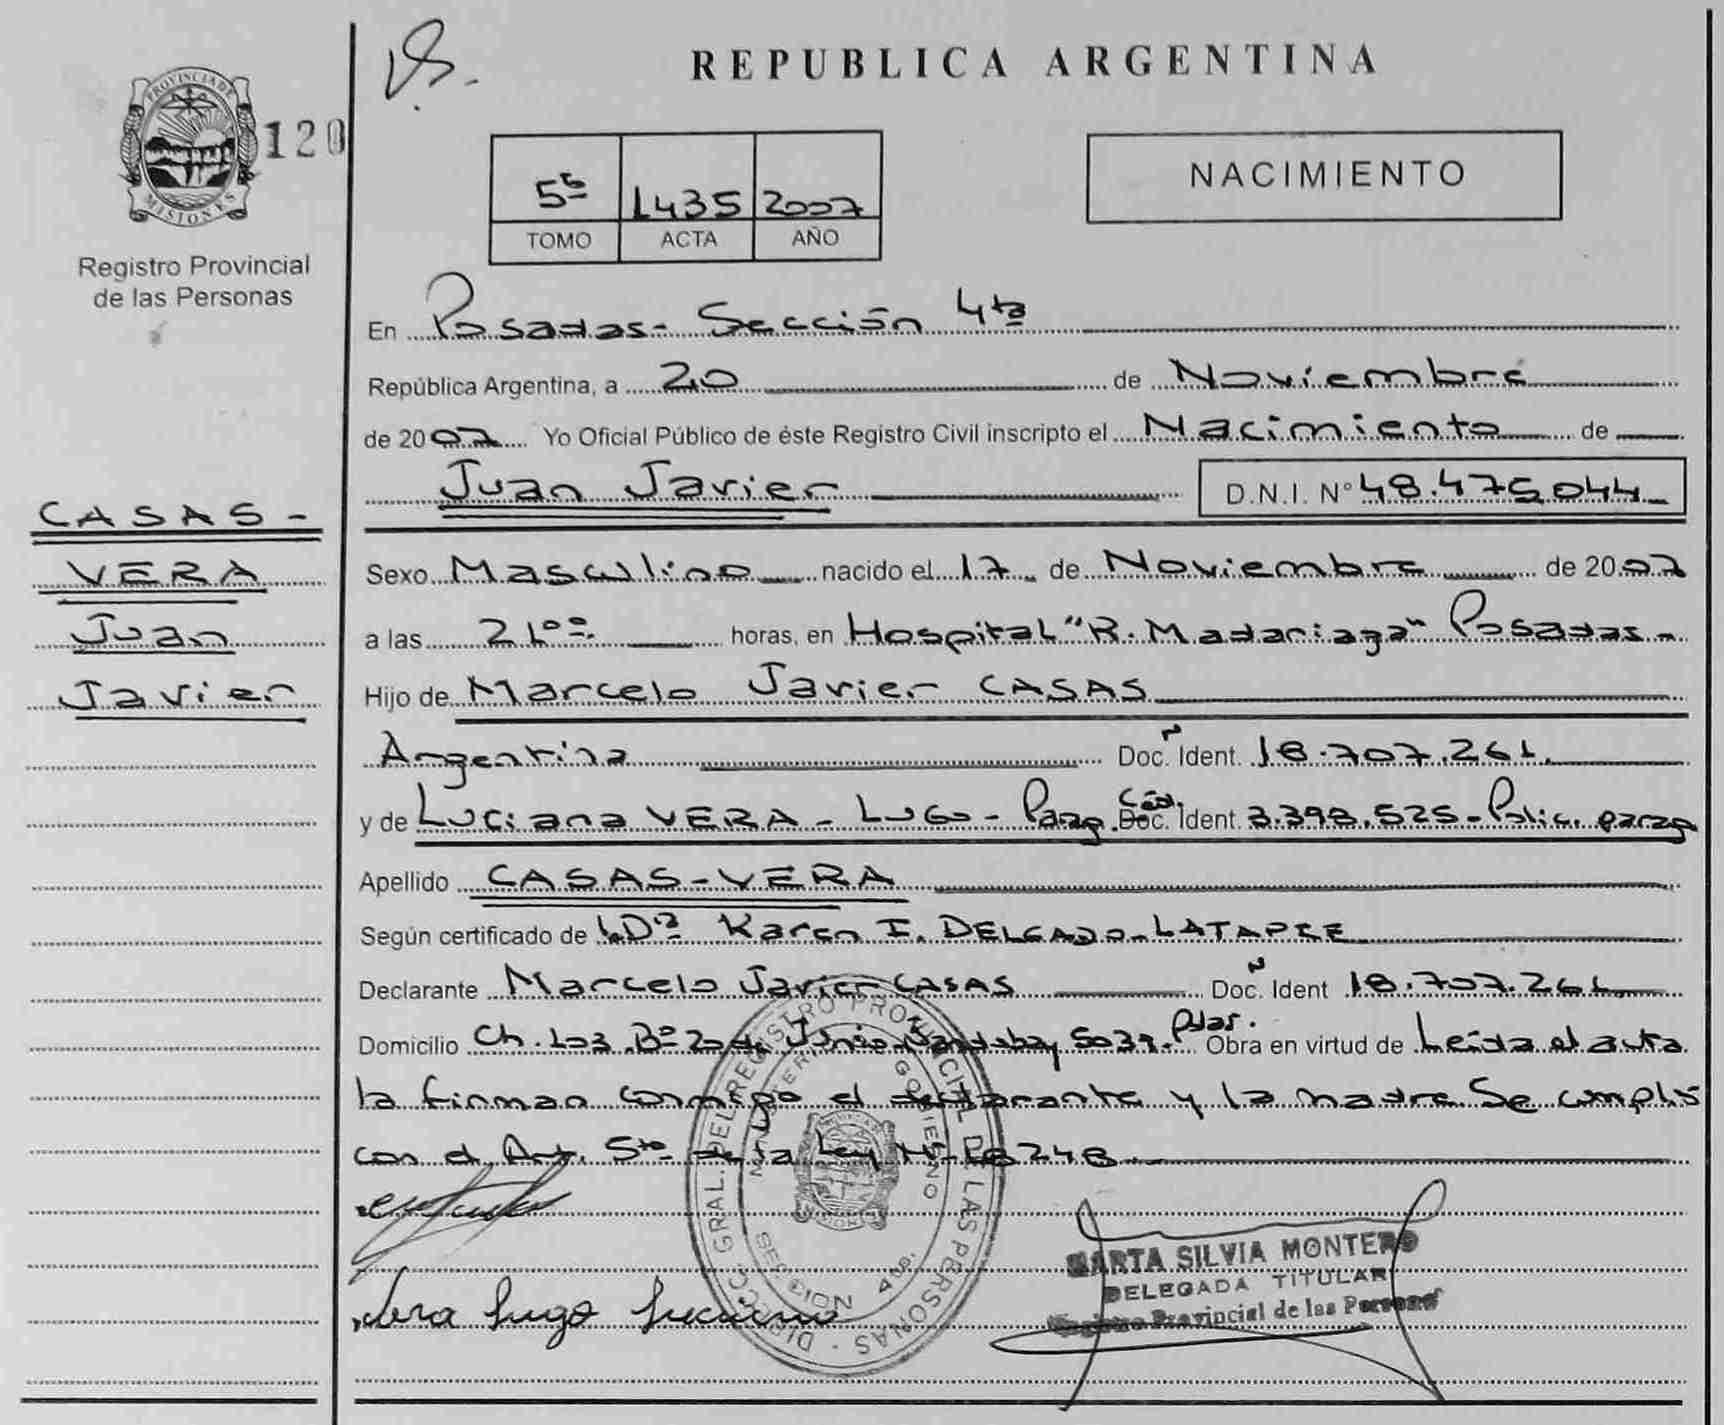 REPUBLICA ARGENTINA
PROVINCIA DE
MISIONES
120
Registro Provincial
de las Personas
5º 1435 2007
TOMO ACTA AÑO
NACIMIENTO
En Posadas- Sección 4ta
República Argentina, a 20 de Noviembre
de 2007 Yo Oficial Público de éste Registro Civil inscripto el Nacimiento de
Juan Javier D.N.I. Nº 48.475044
CASAS-
VERA
Juan
Javier
Sexo Masculino nacido el 17 de Noviembre de 2007
a las 21ºº horas, en Hospital "R. Madariaga" Posadas-
Hijo de Marcelo Javier CASAS
Argentina Doc. Ident. 18.707.261.
y de Luciana VERA - LUGO - Parag. Céd. Doc. Ident. 3.393.525- Polic. parag
Apellido CASAS-VERA
Según certificado de LDª Karen I. DELGADO-LATAPEE
Declarante Marcelo Javier CASAS Doc. Ident 18.707.261
Domicilio Ch. 103 Bº 20 de Junio 5039- Pdas. Obra en virtud de Leída el acta
la firman conmigo el declarante y la madre Se cumplió
con el Art. 5to de la Ley Nº 18248.-
Vera Lugo Luciana
DIRECC. GRAL. DEL REGISTRO PROVINCIAL DE LAS PERSONAS
MINISTERIO GOBIERNO
SECCION 4ta.
MISIONES
MARTA SILVIA MONTERO
DELEGADA TITULAR
Registro Provincial de las Personas